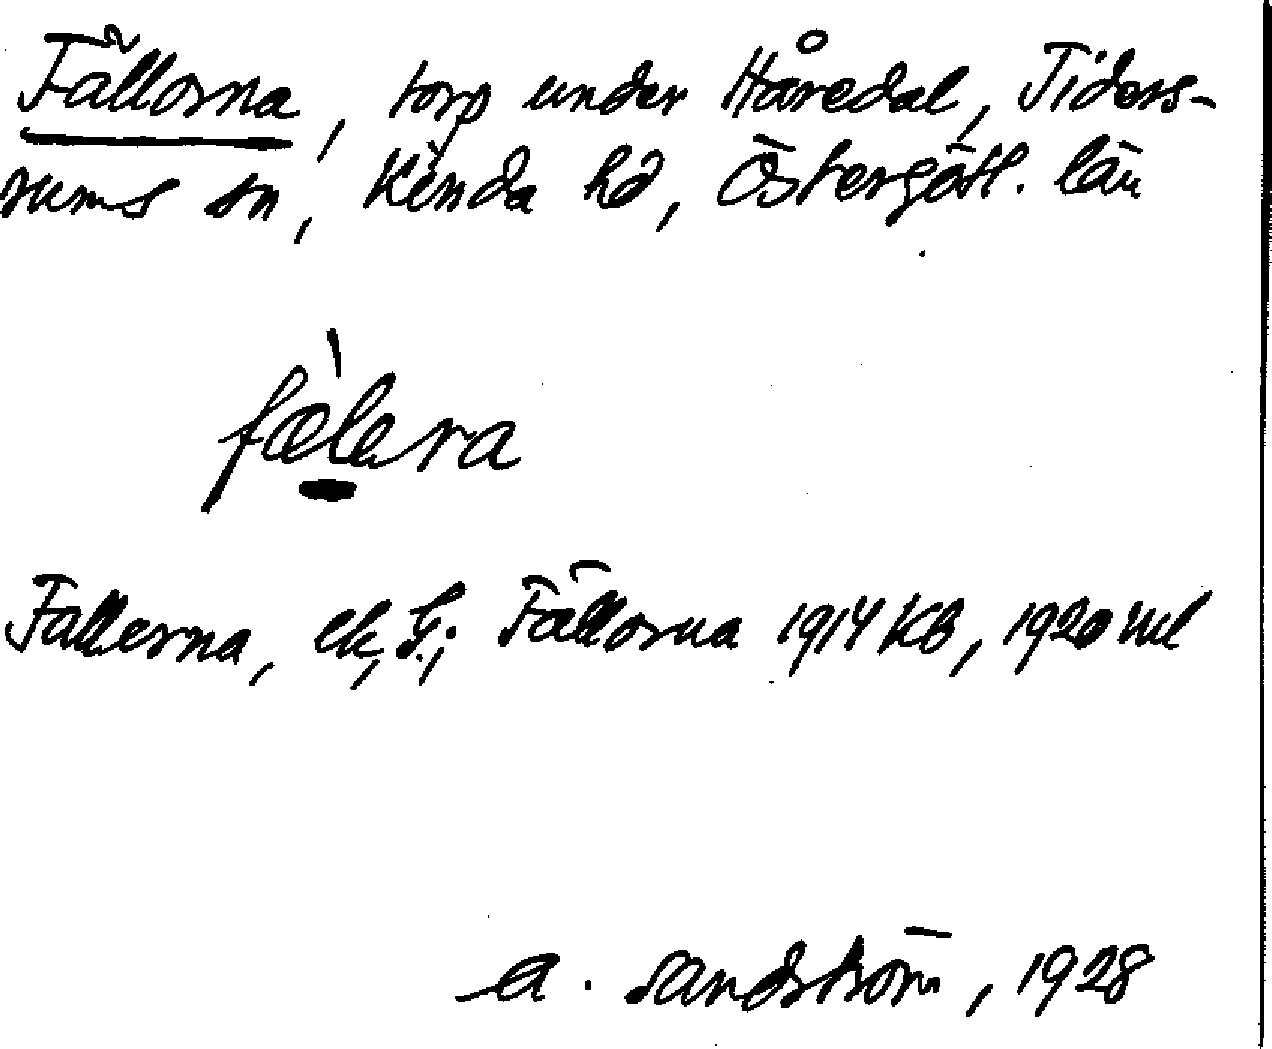 Fällorna, torp under Håredal, Tiders-
rums sn, Kinda hd, Östergötl. län
fæ̀lera
Fallerna, ek, G.; Fällorna 1914 KB, 1920 ml
A. Sandström, 1928